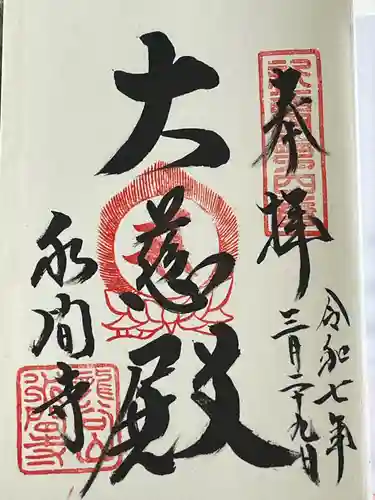 奉拝
令和七年
三月二十九日
大慈殿
永間寺